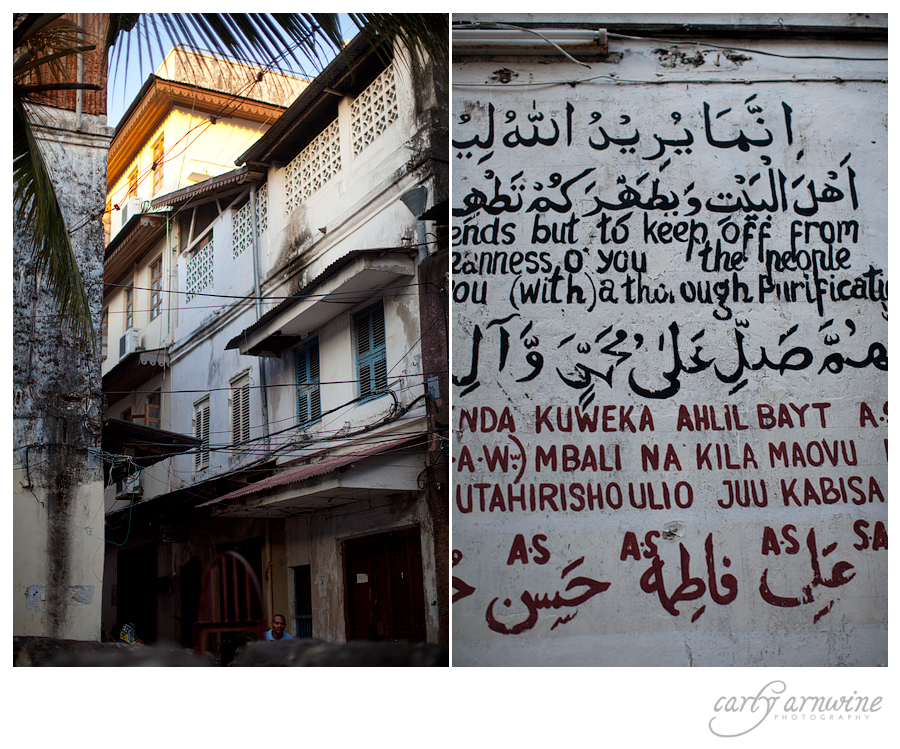 اِنَّمَا يُرِيْدُ اللّٰهُ لِيُ
اَهْلَ الْبَيْتِ وَيُطَهِّرَكُمْ تَطْهِ
ends but to keep off from
eanness o you the people
you (with) a thorough Purificati
هُمَّ صَلِّ عَلٰى مُحَمَّدٍ وَّآلِ
NDA KUWEKA AHLIL BAYT A.S
.A.W.) MBALI NA KILA MAOVU
UTAHIRISHOULIO JUU KABISA
A.S A.S A.S SA
حسين فاطمة علي
carly arnwine
PHOTOGRAPHY